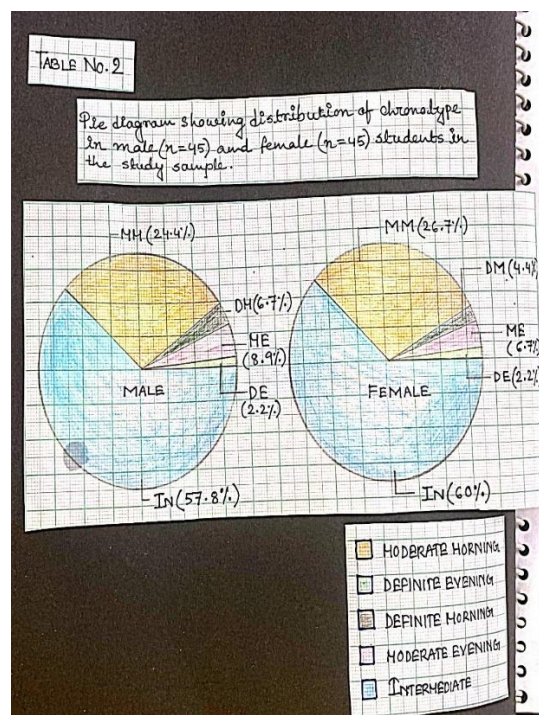 TABLE NO.2
Pie diagram showing distribution of chronotype
in male (n=45) and female (n=45) students in
the study sample.
MM (24.4%)
DM (6.7%)
ME
(8.9%)
DE
(2.2%)
MALE
IN (57.8%)
MM (26.7%)
DM (4.4%)
ME
(6.7%)
DE (2.2%)
FEMALE
IN (60%)
MODERATE MORNING
DEFINITE EVENING
DEFINITE MORNING
MODERATE EVENING
INTERMEDIATE